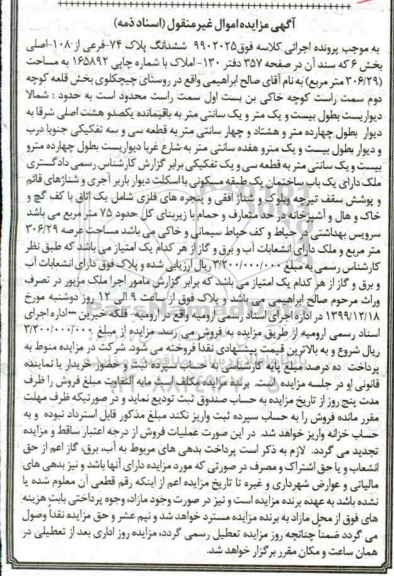 آگهی مزایده اموال غیر منقول (اسناد ذمه)
به موجب پرونده اجرائی کلاسه فوق ۹۹۰۲۰۲۵ ششدانگ پلاک ۷۴-فرعی از ۱۰۸-اصلی
بخش ۶ که سند آن در صفحه ۳۵۷ دفتر ۱۳۰- املاک با شماره چاپی ۱۶۵۸۹۲ به مساحت
(۳۰۶/۲۹ متر مربع) به نام آقای صالح ابراهیمی واقع در روستای چیچکلوی بخش قلعه کوچه
دوم سمت راست کوچه خاکی بن بست اول سمت راست محدود است به حدود : شمالا
دیواریست بطول بیست و یک متر و یک سانتی متر به باقیمانده یکصدو هشت اصلی شرقا به
دیوار بطول چهارده متر و هشتاد و چهار سانتی متر به قطعه سی و سه تفکیکی جنوبا درب
و دیوار بطول بیست و یک مترو هفده سانتی متر به شارع غربا دیواریست بطول چهارده مترو
بیست و یک سانتی متر به قطعه سی و یک تفکیکی برابر گزارش کارشناس رسمی دادگستری
ملک دارای یک باب ساختمان یک طبقه مسکونی با اسکلت دیوار باربر آجری و شناژهای قائم
و پوشش سقف تیرچه وبلوک و شناژ افقی و پنجره های فلزی شامل یک اتاق با کف گچ و
خاک و هال و آشپزخانه واحد متعارف و حمام با زیربنای کل حدود ۷۵ متر مربع می باشد
سرویس بهداشتی در حیاط و کف حیاط سیمانی و خاکی می باشد مساحت عرصه ۳۰۶/۲۹
متر مربع و ملک دارای انشعابات آب و برق و گاز از هر کدام یک امتیاز می باشد که طبق نظر
کارشناس رسمی به مبلغ ۳/۲۰۰/۰۰۰/۰۰۰ ریال ارزیابی شده و پلاک فوق دارای انشعابات آب
و برق و گاز از هر کدام یک امتیاز می باشد که برابر گزارش مامور اجرا ملک مزبور در تصرف
وراث مرحوم صالح ابراهیمی می باشد و پلاک فوق از ساعت ۹ الی ۱۲ روز دوشنبه مورخ
۱۳۹۹/۱۲/۱۸ در اداره اجرای اسناد رسمی ارومیه واقع در ارومیه- فلکه خیرین –اداره اجرای
اسناد رسمی ارومیه از طریق مزایده به فروش می رسد. مزایده از مبلغ ۳/۲۰۰/۰۰۰/۰۰۰
ریال شروع و به بالاترین قیمت پیشنهادی نقدا فروخته می شود. شرکت در مزایده منوط به
پرداخت ده درصد مبلغ پایه کارشناسی به حساب سپرده ثبت و حضور خریدار یا نماینده
قانونی او در جلسه مزایده است. برنده مزایده مکلف است مابه التفاوت مبلغ فروش را ظرف
مدت پنج روز از تاریخ مزایده به حساب صندوق ثبت تودیع نماید و در صورتیکه ظرف مهلت
مقرر مانده فروش را به حساب سپرده ثبت واریز نکند مبلغ مذکور قابل استرداد نبوده و به
حساب خزانه واریز خواهد شد. در این صورت عملیات فروش از درجه اعتبار ساقط و مزایده
تجدید می گردد. لازم به ذکر است پرداخت بدهی های مربوط به آب، برق، گاز اعم از حق
انشعاب و یا حق اشتراک و مصرف در صورتی که مورد مزایده دارای آنها باشد و نیز بدهی های
مالیاتی و عوارض شهرداری و غیره تا تاریخ مزایده اعم از اینکه رقم قطعی آن معلوم شده یا
نشده باشد به عهده برنده مزایده است و نیز در صورت وجود مازاد، وجوه پرداختی بابت هزینه
های فوق از محل مازاد به برنده مزایده مسترد خواهد شد و نیم عشر و حق مزایده نقداً وصول
می گردد ضمناً چنانچه روز مزایده تعطیل رسمی گردد، مزایده روز اداری بعد از تعطیلی در
همان ساعت و مکان مقرر برگزار خواهد شد.